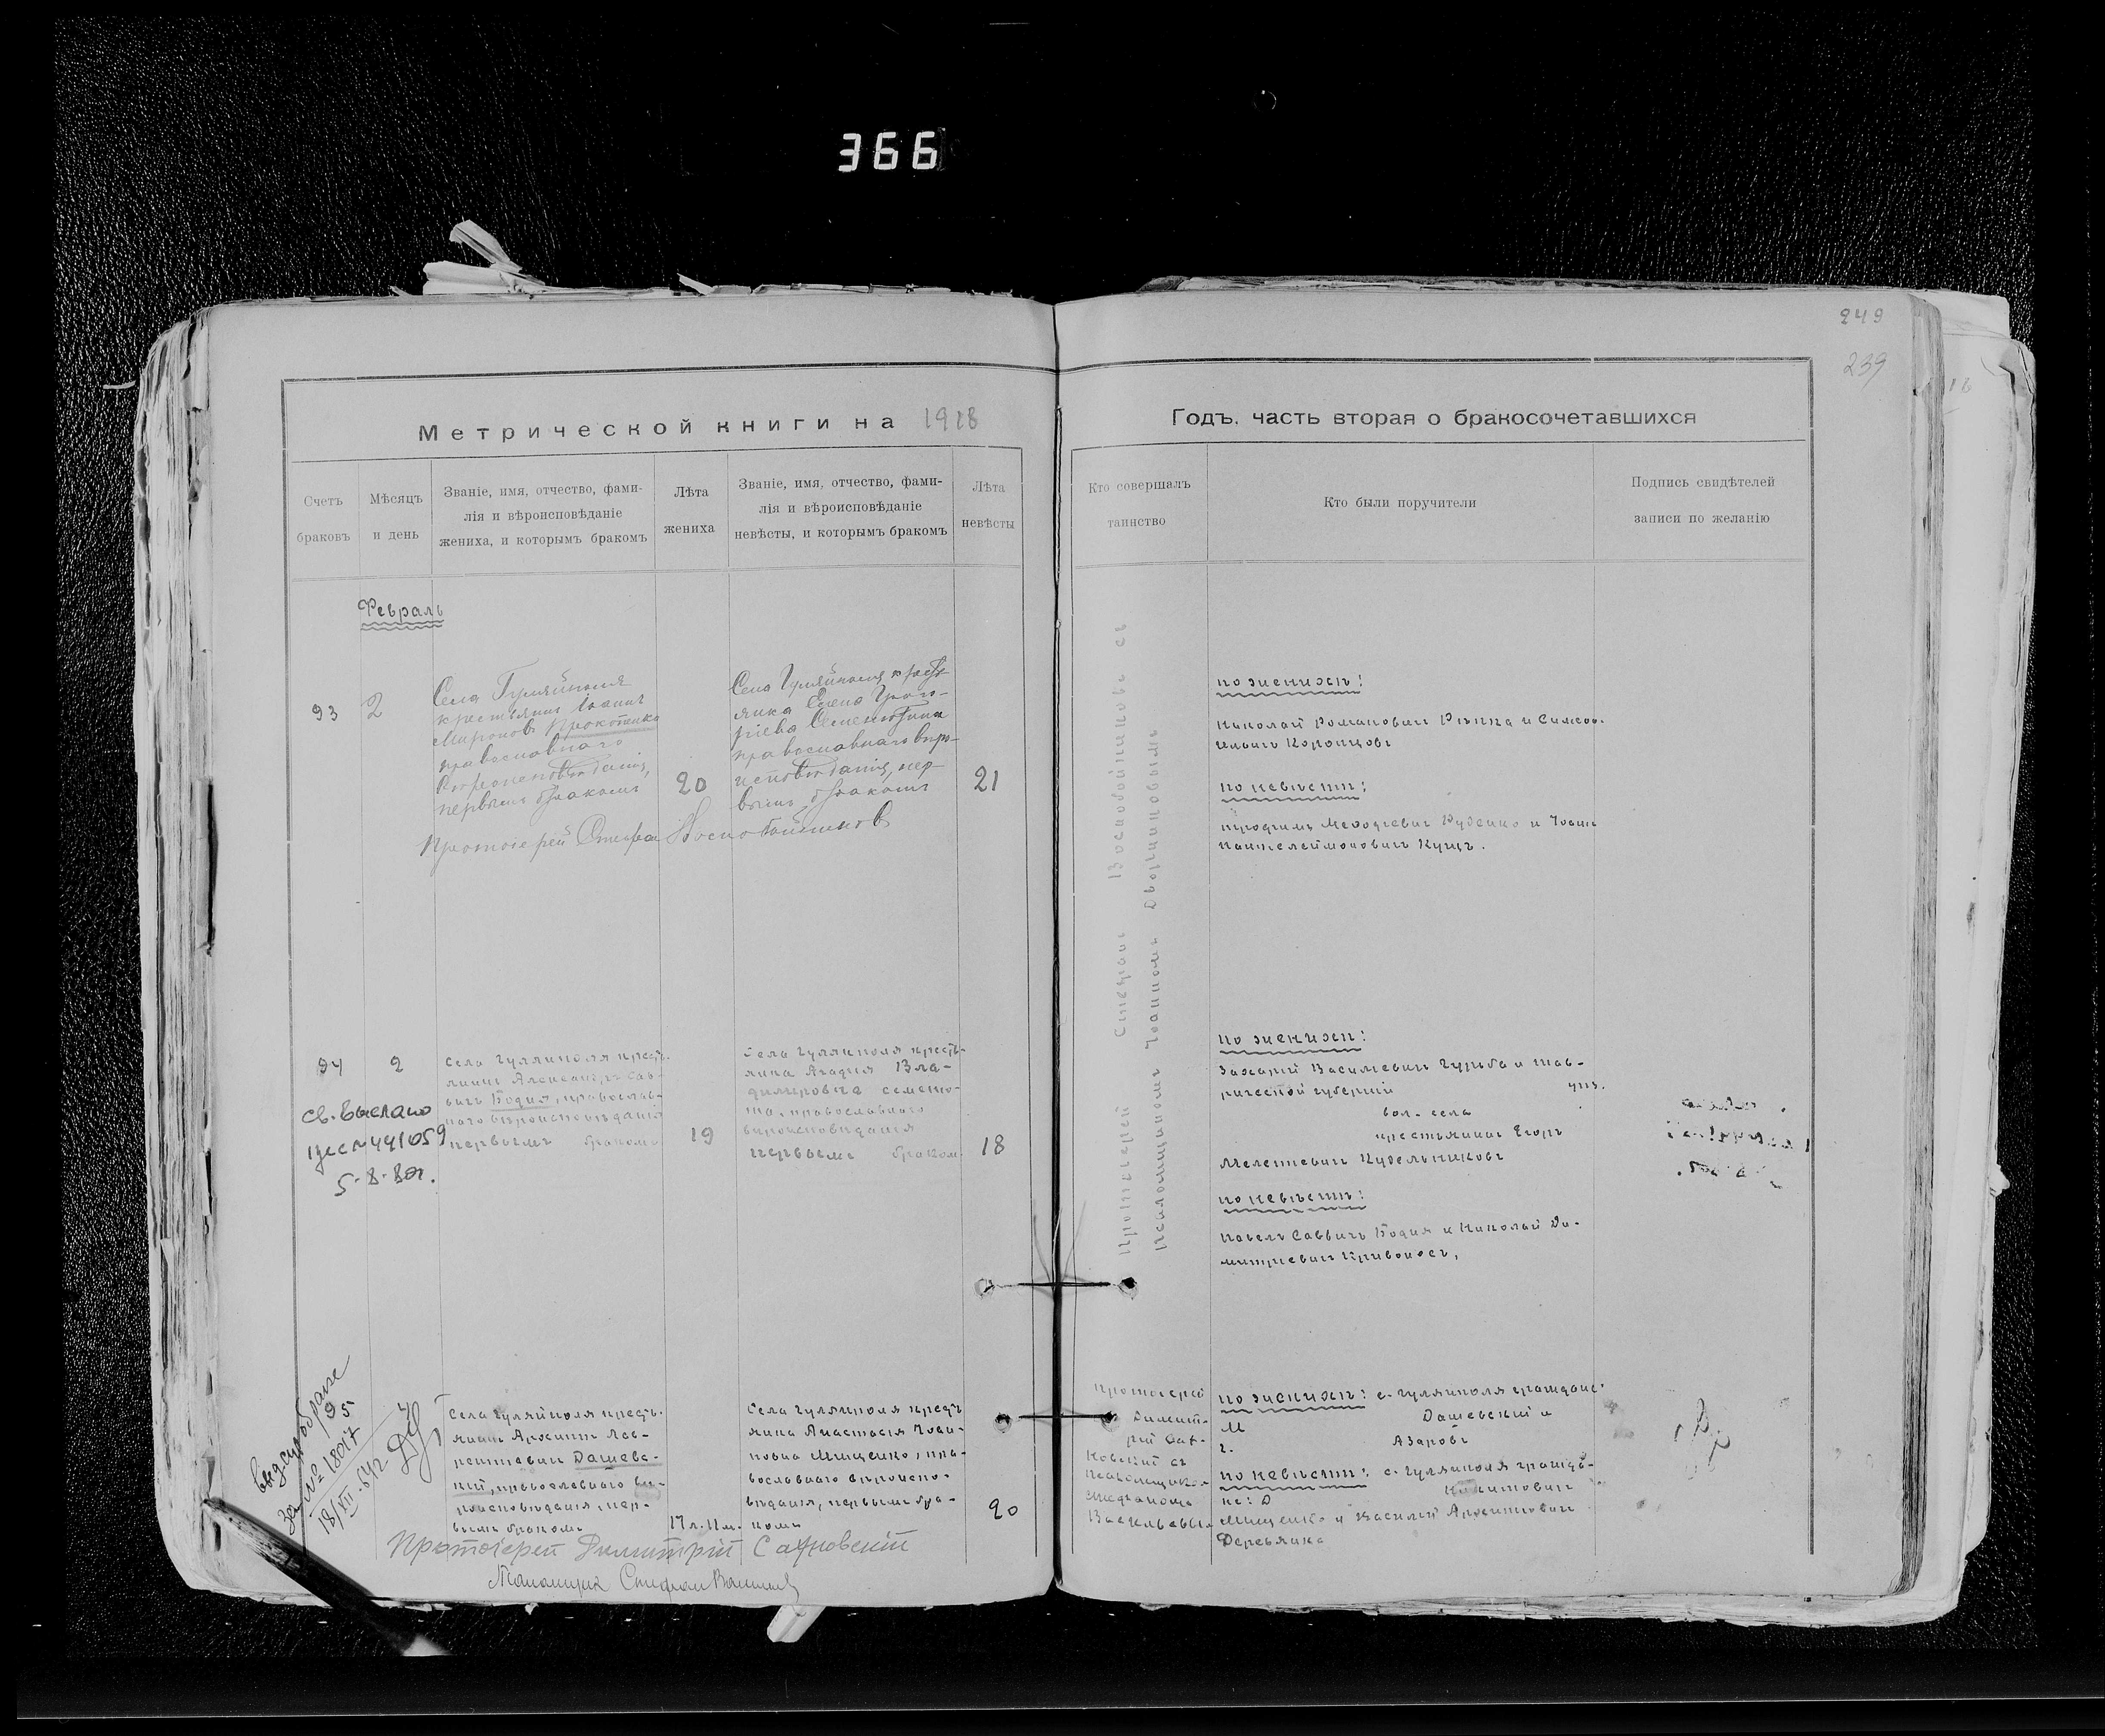 366
249
239
Метрической книги на 1918
Годъ. часть вторая о бракосочетавшихся
Счетъ
браковъ
Мѣсяцъ
и день
Званіе, имя, отчество, фами-
лія и вѣроисповѣданіе
жениха, и которымъ бракомъ
Лѣта
жениха
Званіе, имя, отчество, фами-
лія и вѣроисповѣданіе
невѣсты, и которымъ бракомъ
Лѣта
невѣсты
Кто совершалъ
таинство
Кто были поручители
Подпись свидѣтелей
записи по желанію
Февраль
93
2
Села Гуляйполя
крестьянинъ Іоаннъ
Мироновъ Прокопенко
православнаго
вѣроисповѣданія,
первымъ бракомъ
20
Села Гуляйполя кресть-
янка Елена Григо-
ріева Семенютина
православнаго вѣро-
исповѣданія, пер-
вымъ бракомъ
21
Протоіерей Стефан Воспобойников
по женихѣ:
Николай Романовичъ Рѣпка и Симеон
Ильичъ Коропцовъ
по невѣстѣ:
Трофимъ Меѳодіевичъ Руденко и Іоанн
Пантелеймоновичъ Куцъ.
Протоіерей Стефанъ Воспобойниковъ съ
псаломщикомъ Іоанномъ Двойниковымъ
94
2
св. выслано
5-8-80г.
села Гуляйполя кресть-
янинъ Александръ Сав-
вичъ Бодня, православ-
наго вѣроисповѣданія
первымъ бракомъ
19
Села Гуляйполя кресть-
янка Агафія Вла-
димировна Семеню-
та, православнаго
вѣроисповѣданія
первымъ браком
18
по женихѣ:
Захарій Васильевичъ Гурьба и Тав-
рической губерніи уѣз.
вол. села
крестьянинъ Егоръ
Мелентіевичъ Кудельниковъ
по невѣстѣ:
Павелъ Саввичъ Бодня и Николай Ди-
митріевичъ Кривоносъ,
95
За № 18017
18/XII-
Села Гуляйполя кресть-
янинъ Архиппъ Лав-
рентіевичъ Дашевс-
кій, православнаго вѣ-
роисповѣданія, пер-
вымъ бракомъ
17 л. 11 м.
Села Гуляйполя кресть
янка Анастасія Іоан-
новна Мищенко, пра-
вославнаго вѣроиспо-
вѣданія, первымъ бра-
комъ
20
Протоіерей
Димит-
рій Сах-
новскій съ
псаломщикомъ
Стефаномъ
Васильевы
по женихѣ: с. Гуляйполя граждане:
М Дашевскій и
Г. Азаровъ
по невѣстѣ: с. Гуляйполя гражда-
не: Д Никитовичъ
Мищенко и Василій Архиповичъ
Деревянко
Протоіерей Димитрій Сахновскій
Псаломщик Стефан Васильев